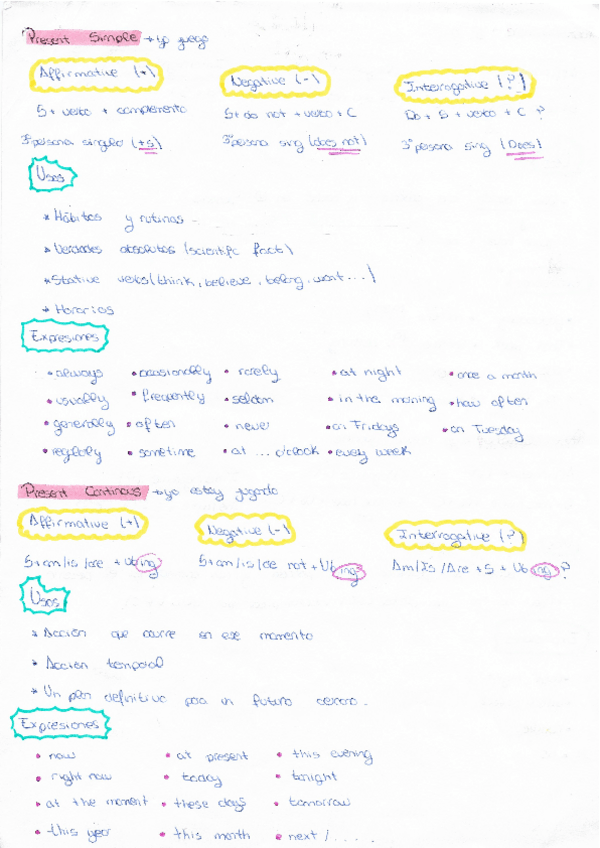 Present Simple → yo juego
Affirmative (+) Negative (-) Interrogative (?)
S + verbo + complemento S + do not + verbo + C Do + S + verbo + C ?
3ª persona singular (+s) 3ª persona sing (does not) 3ª persona sing (Does)
Usos
* Hábitos y rutinas
* Verdades absolutas (scientific fact)
* Stative verbs (think, believe, belong, want...)
* Horarios
Expresiones
• always • occasionally • rarely • at night • once a month
• usually • frequently • seldom • in the morning • how often
• generally • often • never • on Fridays • on Tuesday
• regularly • sometime • at ... o'clock • every week
Present Continous → yo estoy jugando
Affirmative (+) Negative (-) Interrogative (?)
S + am/is/are + Vb ing S + am/is/are not + Vb ing Am/Is/Are + S + Vb ing ?
Usos
* Acción que ocurre en ese momento
* Acción temporal
* Un plan definitivo para un futuro cercano.
Expresiones
• now • at present • this evening
• right now • today • tonight
• at the moment • these days • tomorrow
• this year • this month • next /....